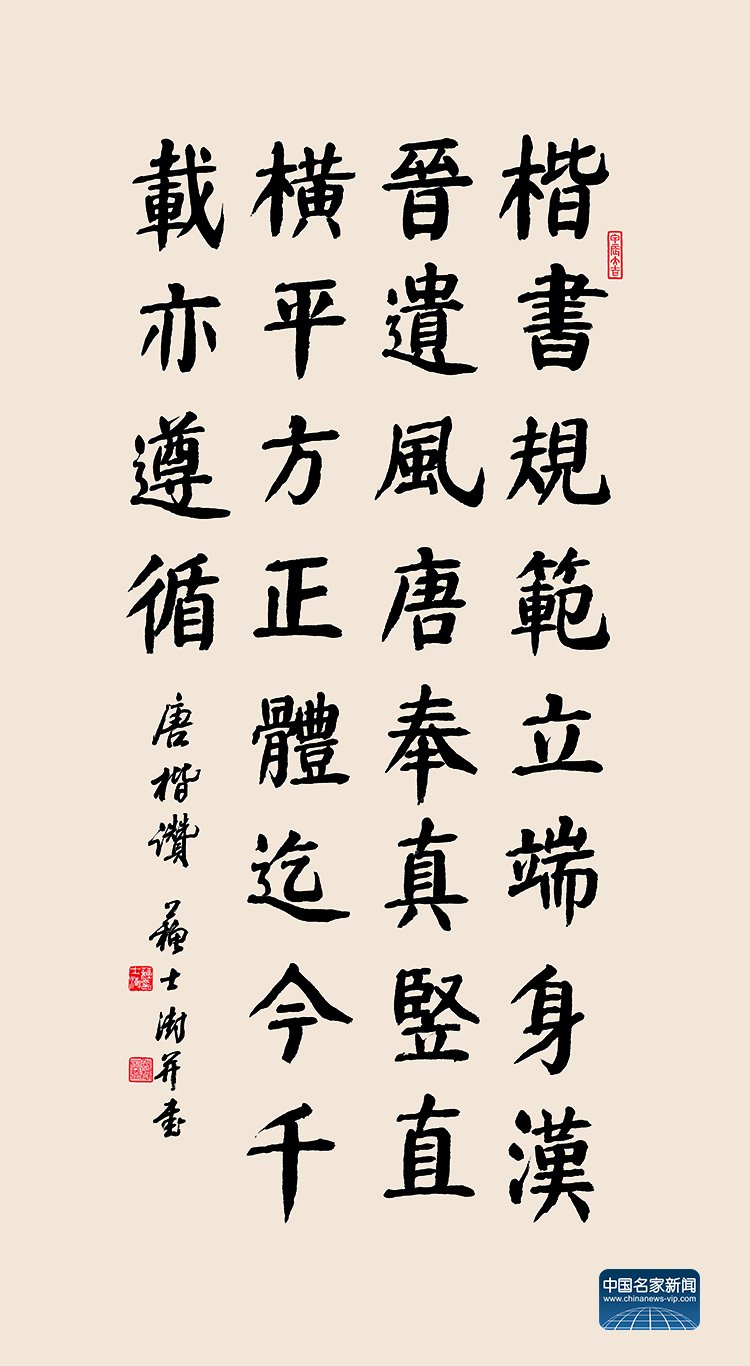 楷書規範立端身漢
晉遺風唐奉真竪直
橫平方正體迄今千
載亦遵循
唐楷讚 蘇士澍并書
中国名家新闻
www.chinanews-vip.com